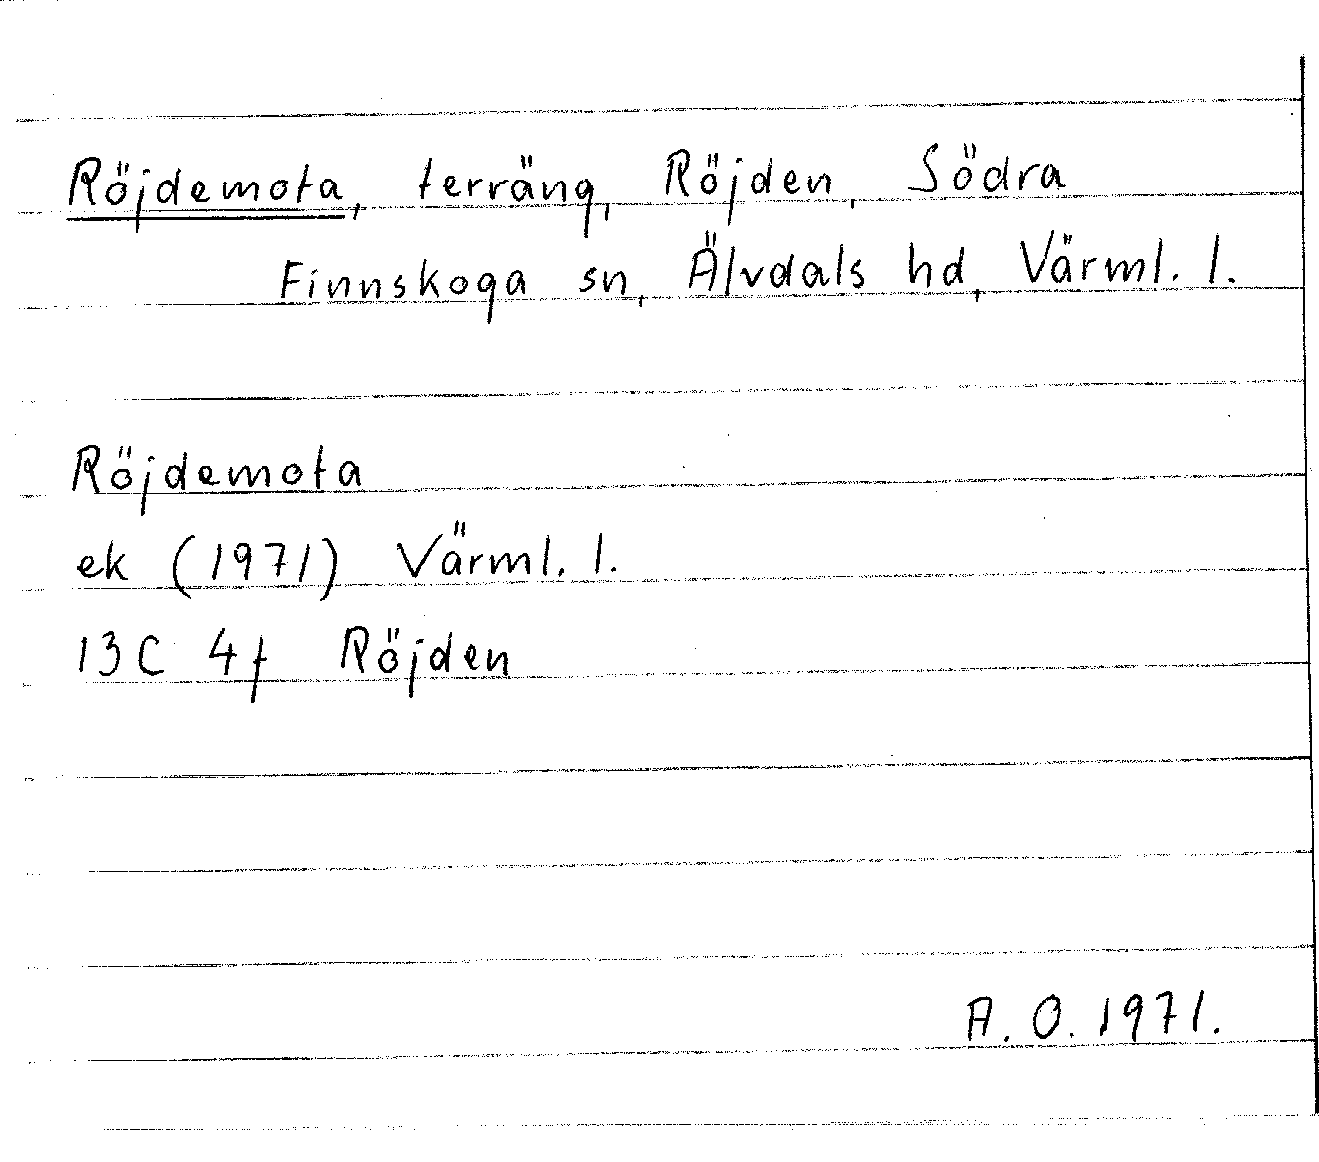 Röjdemota, terräng, Röjden, Södra
Finnskoga sn, Älvdals hd, Värml. l.
Röjdemota
ek (1971) Värml. l.
13C 4f Röjden
A. O. 1971.